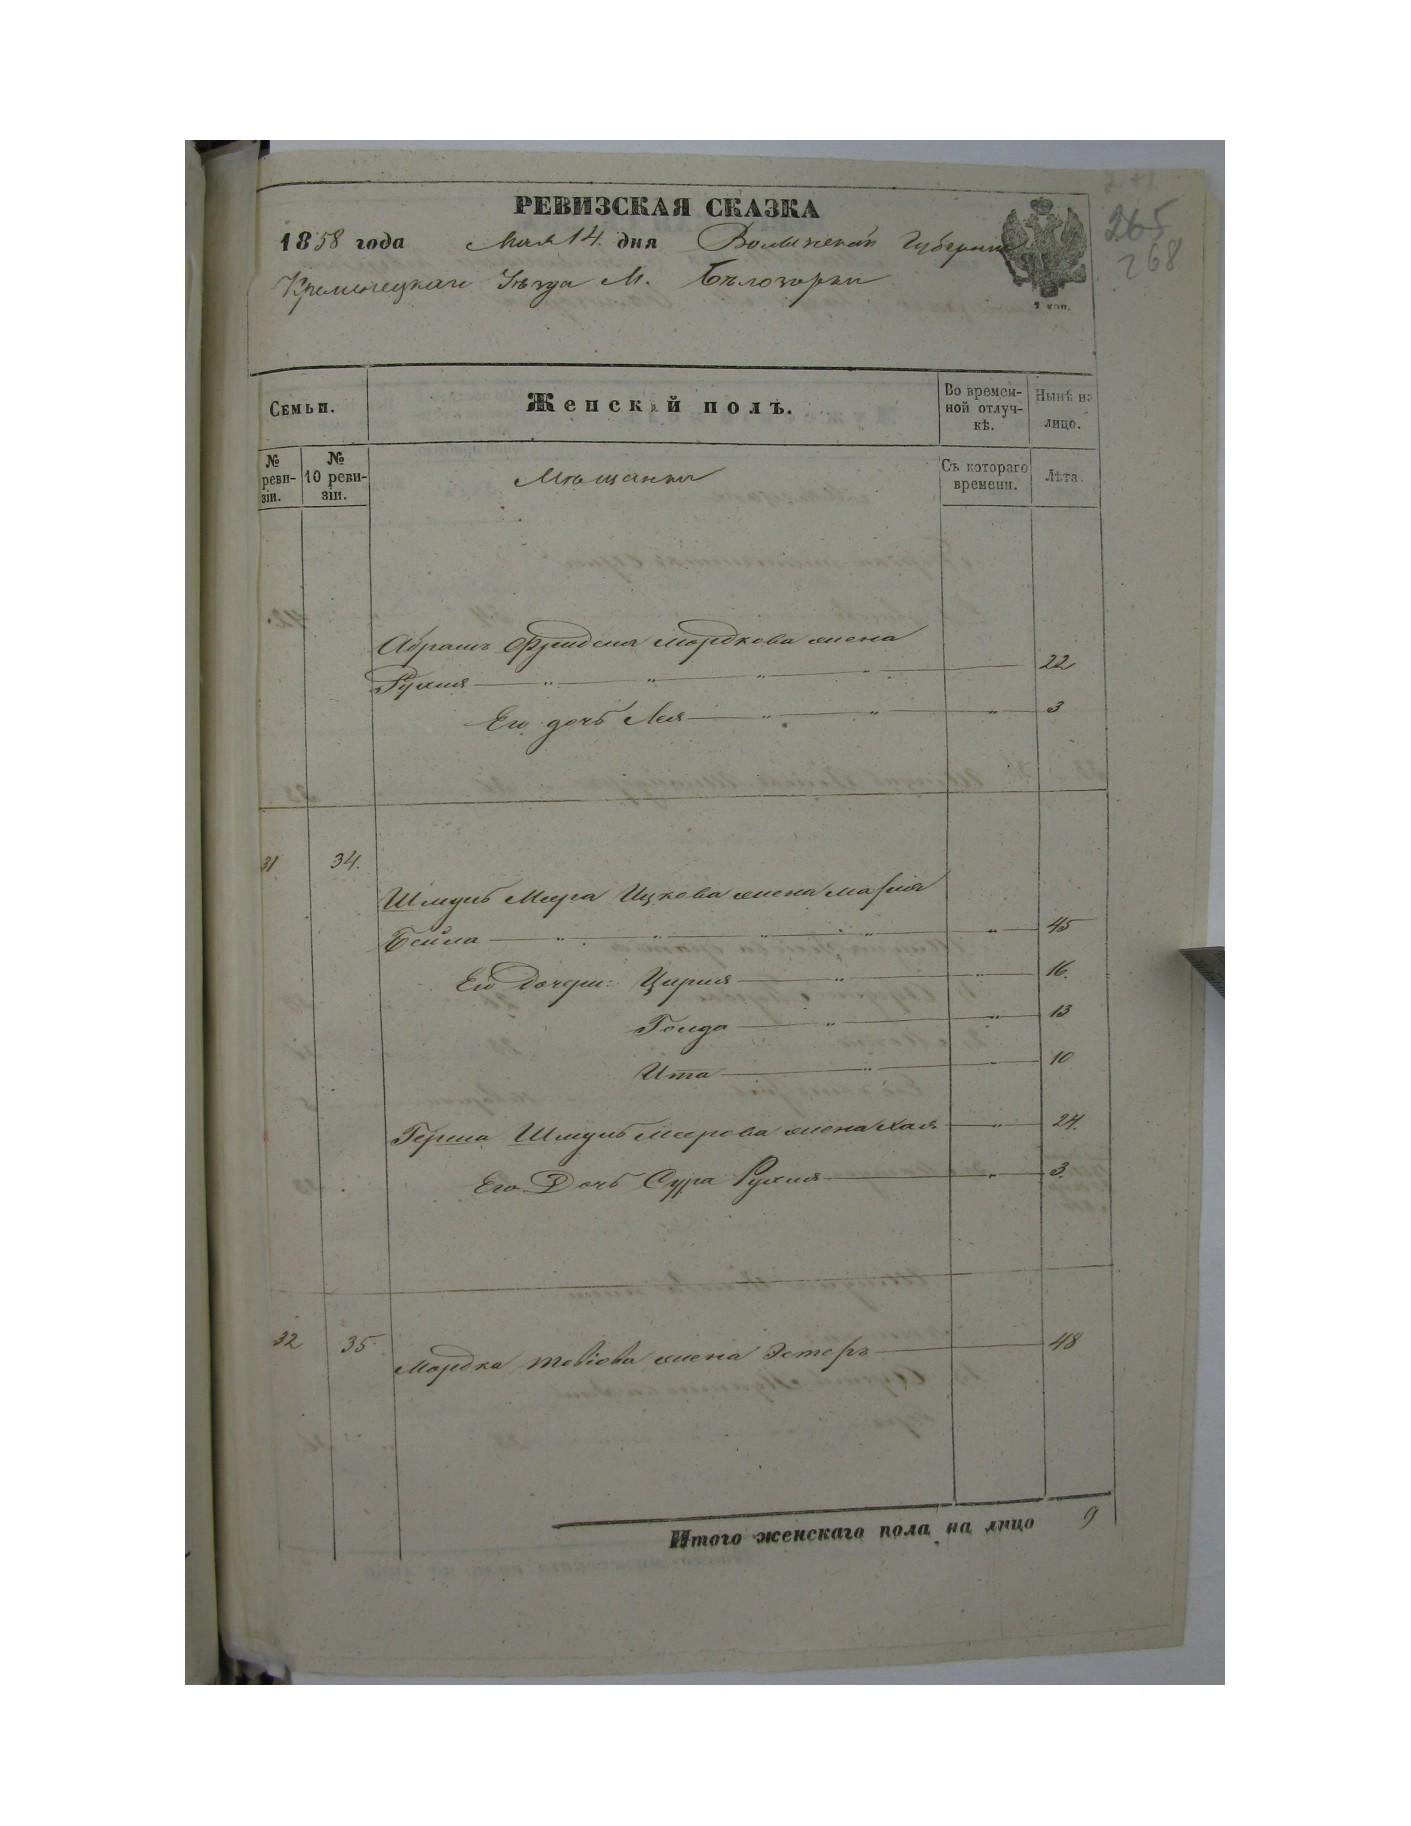 265
268
РЕВИЗСКАЯ СКАЗКА
1858 года Мая 14. дня Волынской Губернии
Кременецкаго Уѣзда М. Бѣлозорки
2 коп.
Семьи.
Женскій полъ.
Во времен-
ной отлуч-
кѣ.
Нынѣ на
лицо.
№
реви-
зіи.
№
10 реви-
зіи.
Мѣщанки
Съ котораго
времени.
Лѣта.
Абрамъ Фридель Мордкова жена
Рухля 22
Его дочь Лея 3
31 34.
Шмуль Меера Ицкова жена Марія
Бейла 45
Его Дочери: Цирля 16.
Голда 13
Ита 10
Герша Шмуль Меерова жена Хая 24.
Его Дочь Сура Рухля 3.
32 35
Мордка Товіова жена Эстеръ 48
Итого женскаго пола на лицо 9